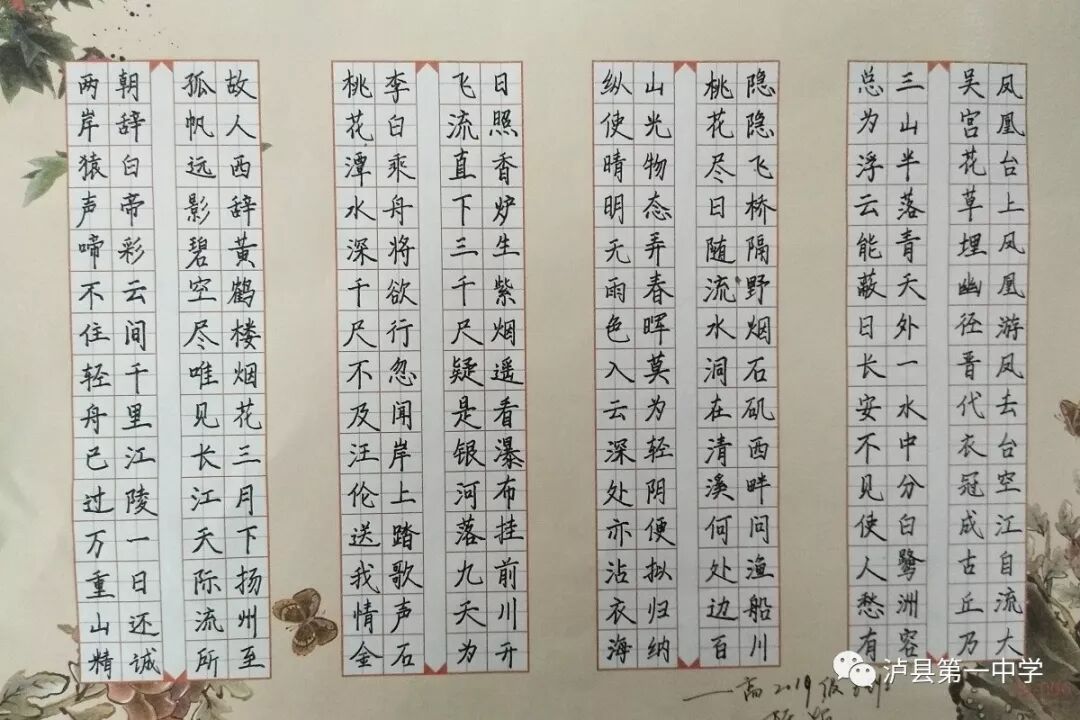 凤凰台上凤凰游凤去台空江自流大
吴宫花草埋幽径晋代衣冠成古丘乃
三山半落青天外一水中分白鹭洲容
总为浮云能蔽日长安不见使人愁有
隐隐飞桥隔野烟石矶西畔问渔船川
桃花尽日随流水洞在清溪何处边百
山光物态弄春晖莫为轻阴便拟归纳
纵使晴明无雨色入云深处亦沾衣海
日照香炉生紫烟遥看瀑布挂前川开
飞流直下三千尺疑是银河落九天为
李白乘舟将欲行忽闻岸上踏歌声石
桃花潭水深千尺不及汪伦送我情金
故人西辞黄鹤楼烟花三月下扬州至
孤帆远影碧空尽唯见长江天际流所
朝辞白帝彩云间千里江陵一日还诚
两岸猿声啼不住轻舟已过万重山精
高2019级
泸县第一中学